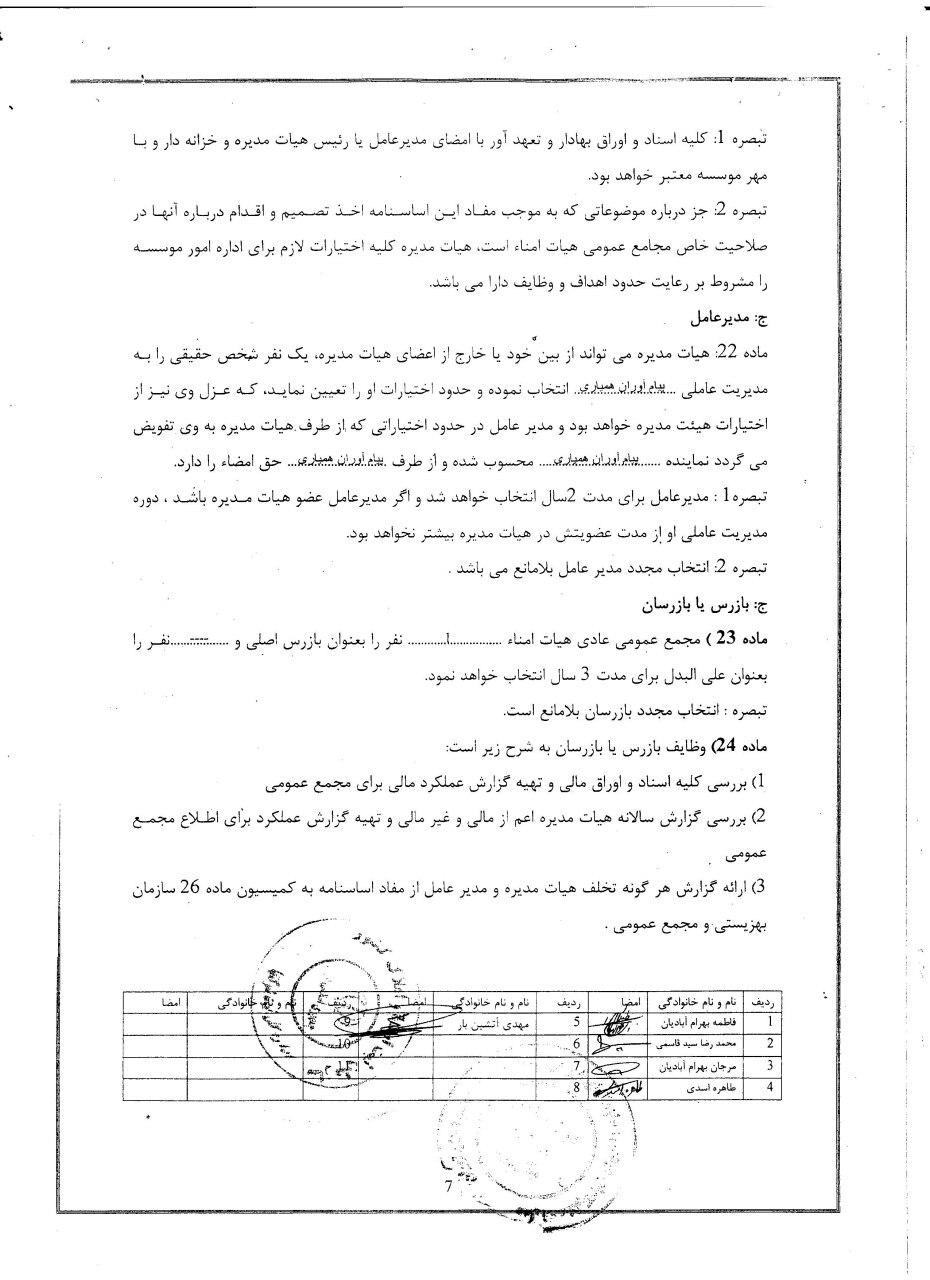 تبصره 1: کلیه اسناد و اوراق بهادار و تعهد آور با امضای مدیرعامل یا رئیس هیات مدیره و خزانه دار و با
مهر موسسه معتبر خواهد بود.
تبصره 2: جز درباره موضوعاتی که به موجب مفاد این اساسنامه اخذ تصمیم و اقدام درباره آنها در
صلاحیت خاص مجامع عمومی هیات امناء است، هیات مدیره کلیه اختیارات لازم برای اداره امور موسسه
را مشروط بر رعایت حدود اهداف و وظایف دارا می باشد.
ج: مدیرعامل
ماده 22: هیات مدیره می تواند از بین خود یا خارج از اعضای هیات مدیره، یک نفر شخص حقیقی را به
مدیریت عاملی ...پیام آوران همیاری... انتخاب نموده و حدود اختیارات او را تعیین نماید، که عزل وی نیز از
اختیارات هیئت مدیره خواهد بود و مدیر عامل در حدود اختیاراتی که از طرف هیات مدیره به وی تفویض
می گردد نماینده ......پیام آوران همیاری.... محسوب شده و از طرف ...پیام آوران همیاری... حق امضاء را دارد.
تبصره1 : مدیرعامل برای مدت 2سال انتخاب خواهد شد و اگر مدیرعامل عضو هیات مدیره باشد ، دوره
مدیریت عاملی او از مدت عضویتش در هیات مدیره بیشتر نخواهد بود.
تبصره 2: انتخاب مجدد مدیر عامل بلامانع می باشد .
ج: بازرس یا بازرسان
ماده 23 ) مجمع عمومی عادی هیات امناء ...............1........... نفر را بعنوان بازرس اصلی و .......-----......نفر را
بعنوان علی البدل برای مدت 3 سال انتخاب خواهد نمود.
تبصره : انتخاب مجدد بازرسان بلامانع است.
ماده 24) وظایف بازرس یا بازرسان به شرح زیر است:
1) بررسی کلیه اسناد و اوراق مالی و تهیه گزارش عملکرد مالی برای مجمع عمومی
2) بررسی گزارش سالانه هیات مدیره اعم از مالی و غیر مالی و تهیه گزارش عملکرد برای اطلاع مجمع
عمومی
3) ارائه گزارش هر گونه تخلف هیات مدیره و مدیر عامل از مفاد اساسنامه به کمیسیون ماده 26 سازمان
بهزیستی و مجمع عمومی .
ردیف نام و نام خانوادگی امضا ردیف نام و نام خانوادگی امضا ردیف نام و نام خانوادگی امضا
1 فاطمه بهرام آبادیان 5 مهدی آتشین بار 9
2 محمد رضا سید قاسمی 6 10
3 مرجان بهرام آبادیان 7 11
4 طاهره اسدی 8
7